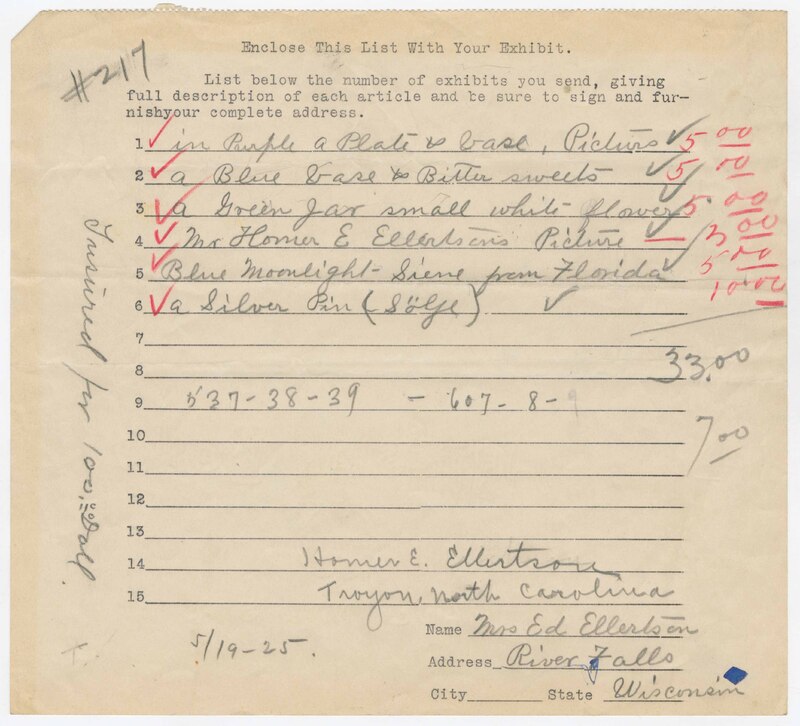 #217
Enclose This List With Your Exhibit.
List below the number of exhibits you send, giving
full description of each article and be sure to sign and fur-
nishyour complete address.
1 in Purple a Plate & Vase, Picture 5 00
2 a Blue Vase & Bitter sweets 5 00
3 a Green Jar small white flower 5 00
4 Mr Homer E Ellertsons Picture — 3 00
5 Blue Moonlight Siene from Florida 5 00
6 a Silver Pin (Sölje) 10 00
7
8 33.00
9 537-38-39 - 607-8-9
10 7 00
11
12
13
14 Homer E. Ellertson
15 Tryon, North Carolina
Name Mrs Ed Ellertson
Address River Falls
City State Wisconsin
5/19-25.
Insured for 100.00 Doll.